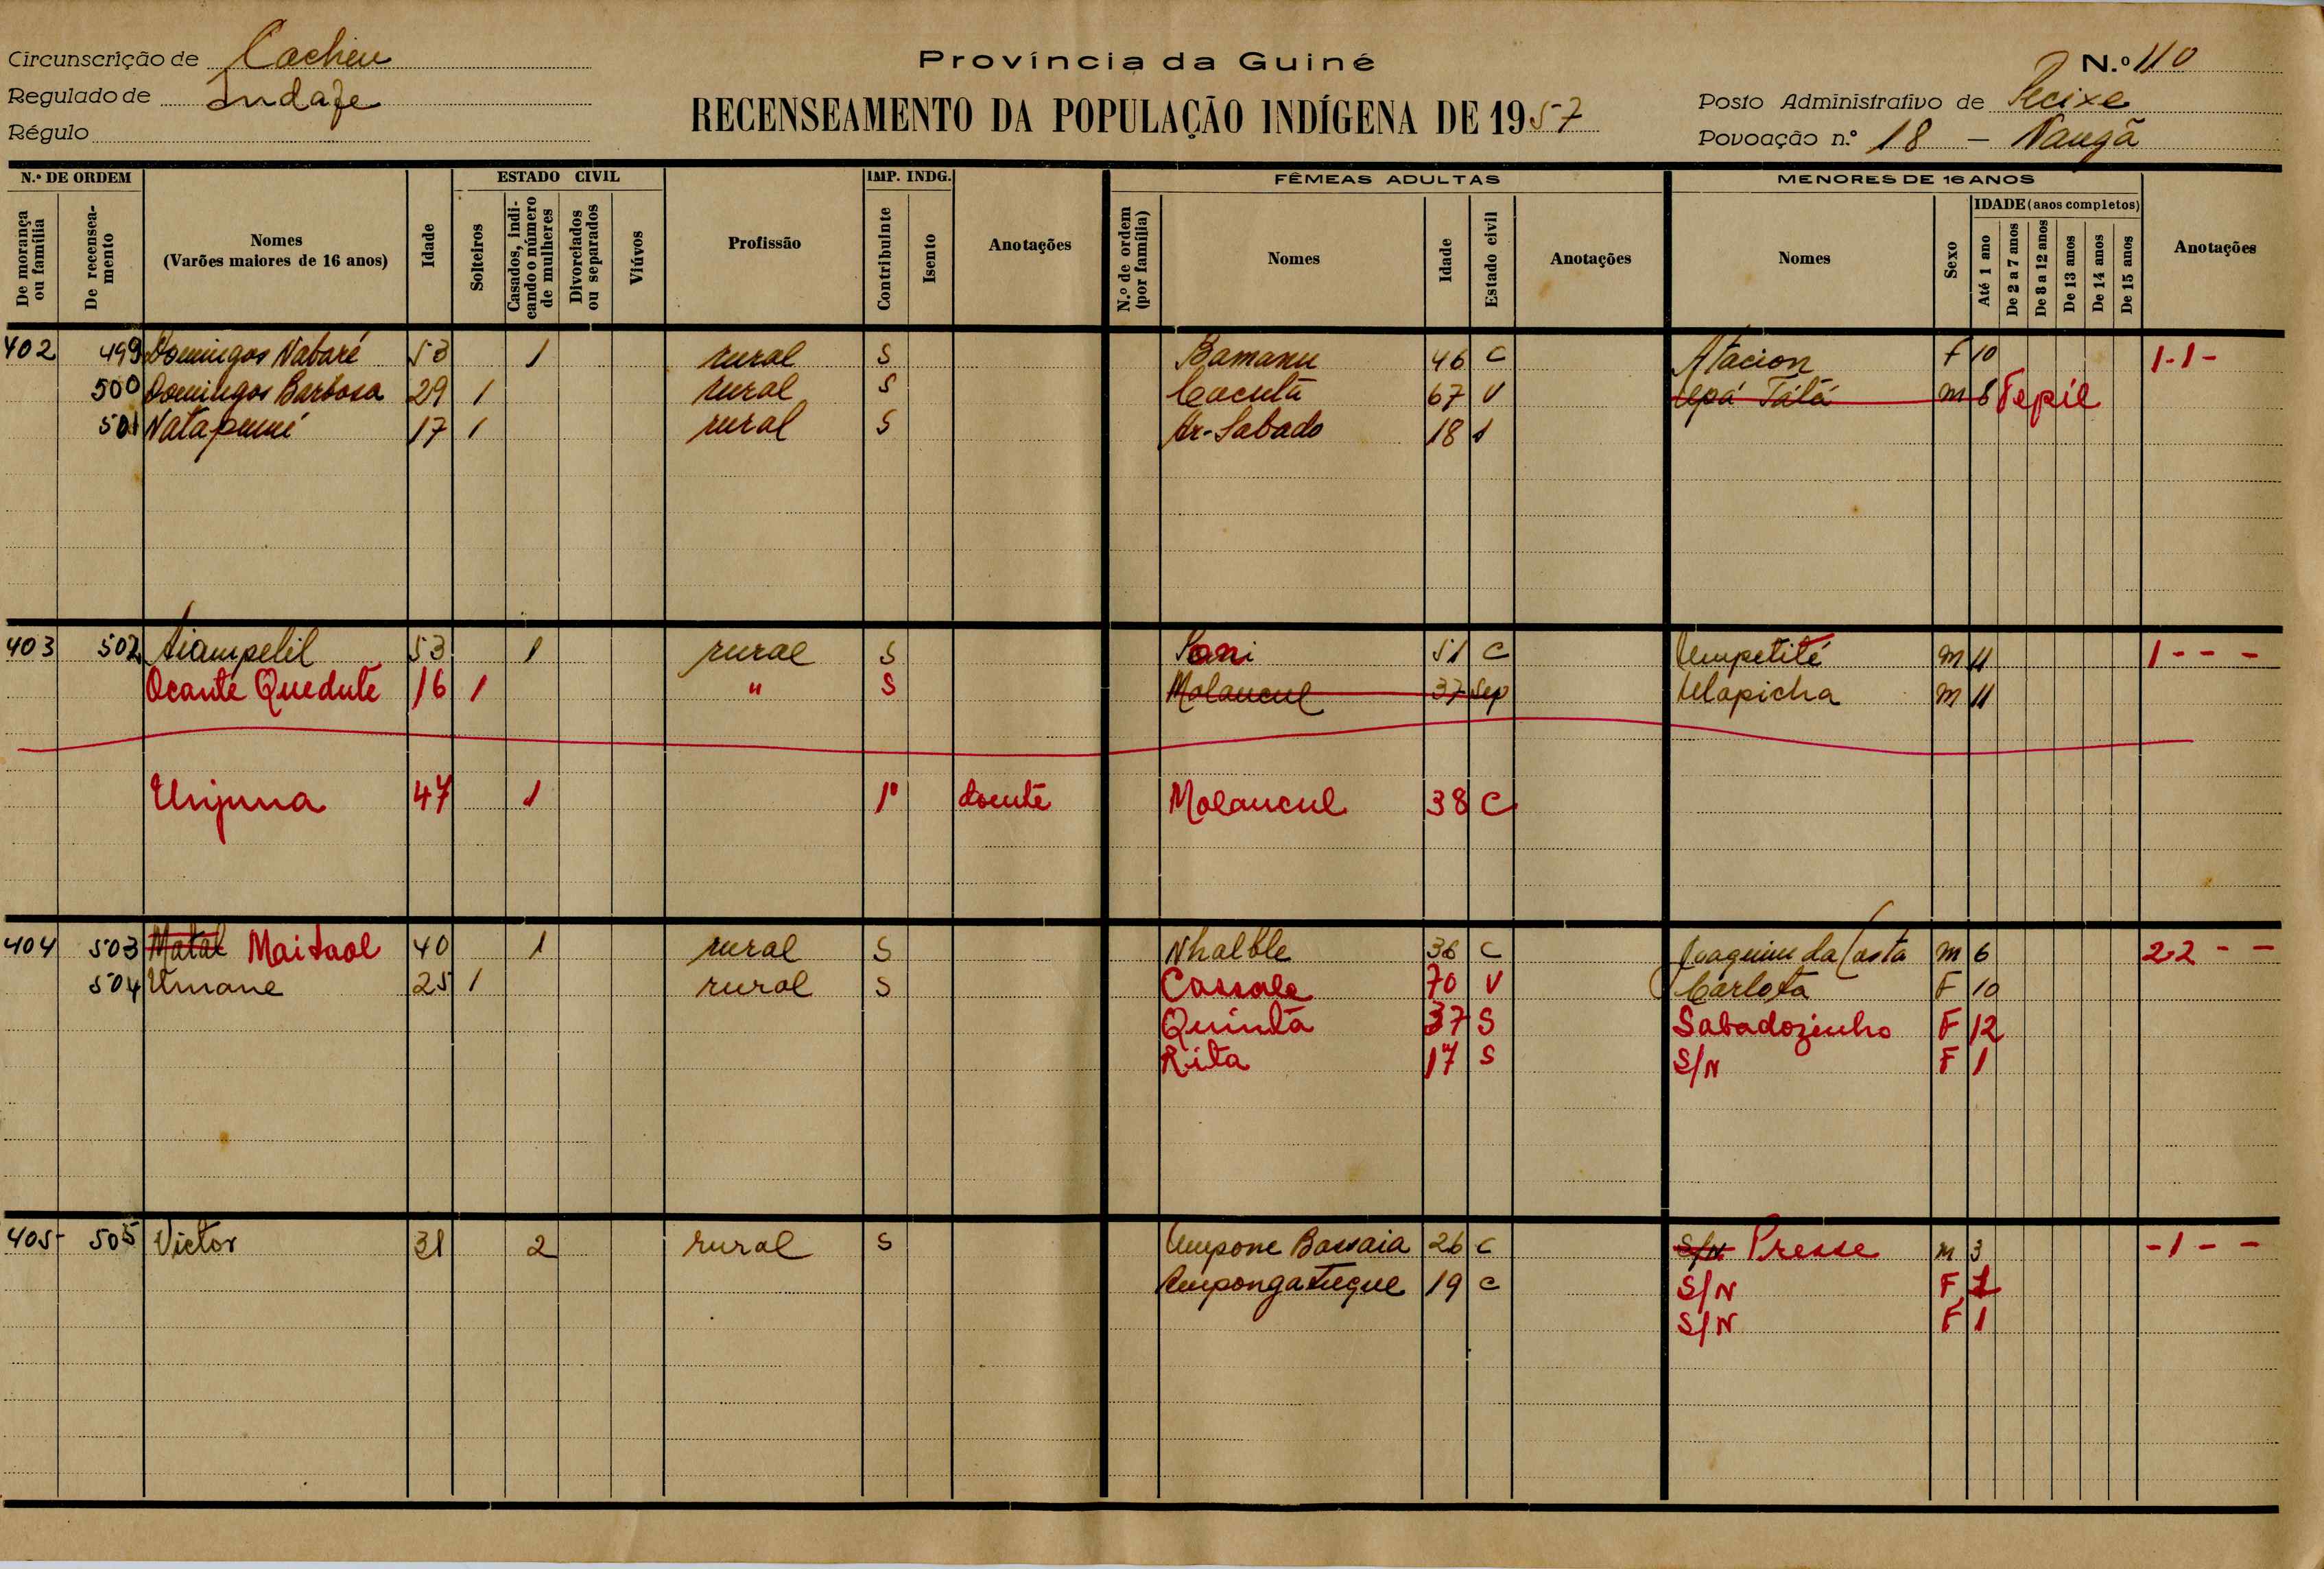 Circunscrição de Cacheu
Regulado de Indafe
Régulo
Província da Guiné
RECENSEAMENTO DA POPULAÇÃO INDÍGENA DE 1957
N.º 110
Posto Administrativo de Pecixe
Povoação n.º 18 – Nangã
N.º DE ORDEM ESTADO CIVIL IMP. INDG. FÊMEAS ADULTAS MENORES DE 16 ANOS
De morança ou família De recenseamento Nomes (Varões maiores de 16 anos) Idade Solteiros Casados, indicando o número de mulheres Divorciados ou separados Viúvos Profissão Contribuinte Isento Anotações N.º de ordem (por família) Nomes Idade Estado civil Anotações Nomes Sexo IDADE (anos completos) Até 1 ano De 2 a 7 anos De 8 a 12 anos De 13 anos De 14 anos De 15 anos Anotações
402 499 Domingos Nabaré 53 1 rural S Bamanu 46 C Atacion F 10 1-1-
500 Domingos Barbosa 29 1 rural S Cacutã 67 V Upá Tátá m 8 Pepil
501 Natapumé 17 1 rural S Ar-Sabado 18 s
403 502 Aiampelil 53 1 rural S Sani 51 C Umpetité m 11 1 - - -
Ocante Quedute 16 1 " S Molancul 37 Sep Ulapicha m 11
Unjuna 47 1 1º doente Molancul 38 C
404 503 Matal Maitaol 40 1 rural S Nhalble 36 C Joaquim da Costa m 6 2-2 - -
504 Umane 25 1 rural S Cassale 70 V Carlota F 10
Quintã 37 S Sabadozinho F 12
Rita 17 S S/N F 1
405 505 Victor 31 2 rural S Umpone Bassaia 26 C S/N Presse m 3 -1 - -
Umpongatuque 19 C S/N F 1
S/N F 1